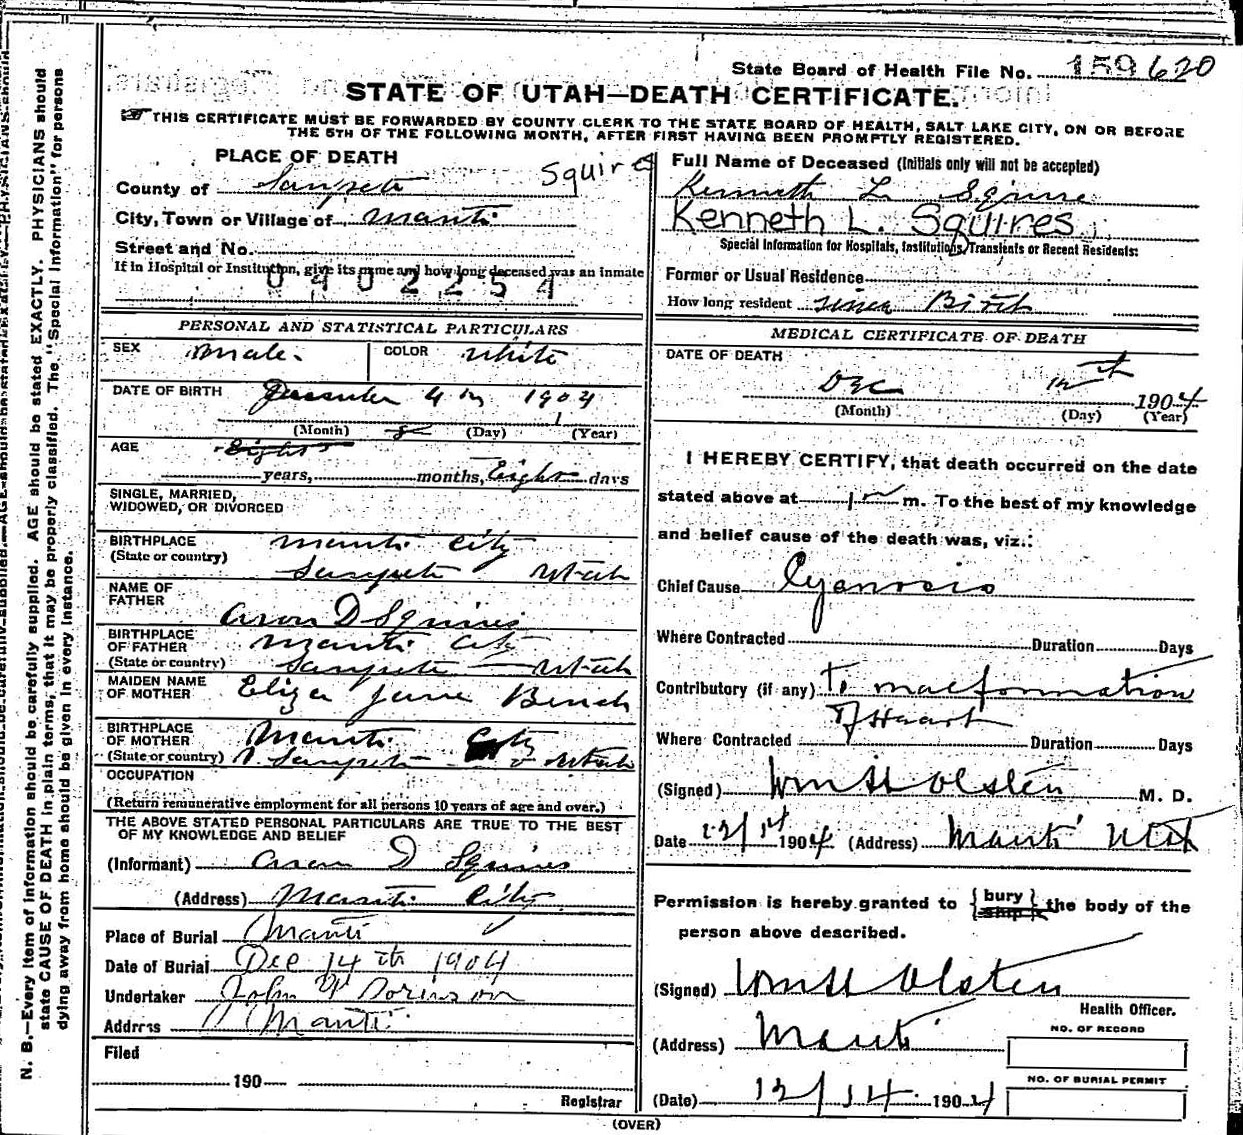 State Board of Health File No. 159620
STATE OF UTAH—DEATH CERTIFICATE.
THIS CERTIFICATE MUST BE FORWARDED BY COUNTY CLERK TO THE STATE BOARD OF HEALTH, SALT LAKE CITY, ON OR BEFORE
THE 5TH OF THE FOLLOWING MONTH, AFTER FIRST HAVING BEEN PROMPTLY REGISTERED.
PLACE OF DEATH
Squire
County of Sanpete
City, Town or Village of Manti
Street and No.
If in Hospital or Institution, give its name and how long deceased was an inmate
0402254
PERSONAL AND STATISTICAL PARTICULARS
SEX Male. COLOR White
DATE OF BIRTH December 4 1904
(Month) (Day) (Year)
AGE Eight
years, months, Eight days
SINGLE, MARRIED,
WIDOWED, OR DIVORCED
BIRTHPLACE Manti City
(State or country) Sanpete Utah
NAME OF
FATHER Aron D Squires
BIRTHPLACE
OF FATHER Manti City
(State or country) Sanpete Utah
MAIDEN NAME
OF MOTHER Eliza Jane Bench
BIRTHPLACE
OF MOTHER Manti City
(State or country) Sanpete Utah
OCCUPATION
(Return remunerative employment for all persons 10 years of age and over.)
THE ABOVE STATED PERSONAL PARTICULARS ARE TRUE TO THE BEST
OF MY KNOWLEDGE AND BELIEF
(Informant) Aron D Squires
(Address) Manti City
Place of Burial Manti
Date of Burial Dec 14th 1904
Undertaker John
Address Manti
Filed
190
Registrar
Full Name of Deceased (Initials only will not be accepted)
Kenneth L. Squire
Kenneth L. Squires
Special Information for Hospitals, Institutions, Transients or Recent Residents:
Former or Usual Residence
How long resident since Birth
MEDICAL CERTIFICATE OF DEATH
DATE OF DEATH
Dec 12th 1904
(Month) (Day) (Year)
I HEREBY CERTIFY, that death occurred on the date
stated above at m. To the best of my knowledge
and belief cause of the death was, viz.:
Chief Cause Cyanosis
Where Contracted Duration Days
Contributory (if any) To malformation
of Heart
Where Contracted Duration Days
(Signed) Wm H Olsten M. D.
Date 1904 (Address) Manti Utah
Permission is hereby granted to { bury } the body of the
{ ship }
person above described.
(Signed) Wm H Olsten
Health Officer.
(Address) Manti
NO. OF RECORD
NO. OF BURIAL PERMIT
(Date) 12/14 1904
(OVER)
N. B.—Every item of information should be carefully supplied. AGE should be stated EXACTLY. PHYSICIANS should
state CAUSE OF DEATH in plain terms, that it may be properly classified. The "Special Information" for persons
dying away from home should be given in every instance.